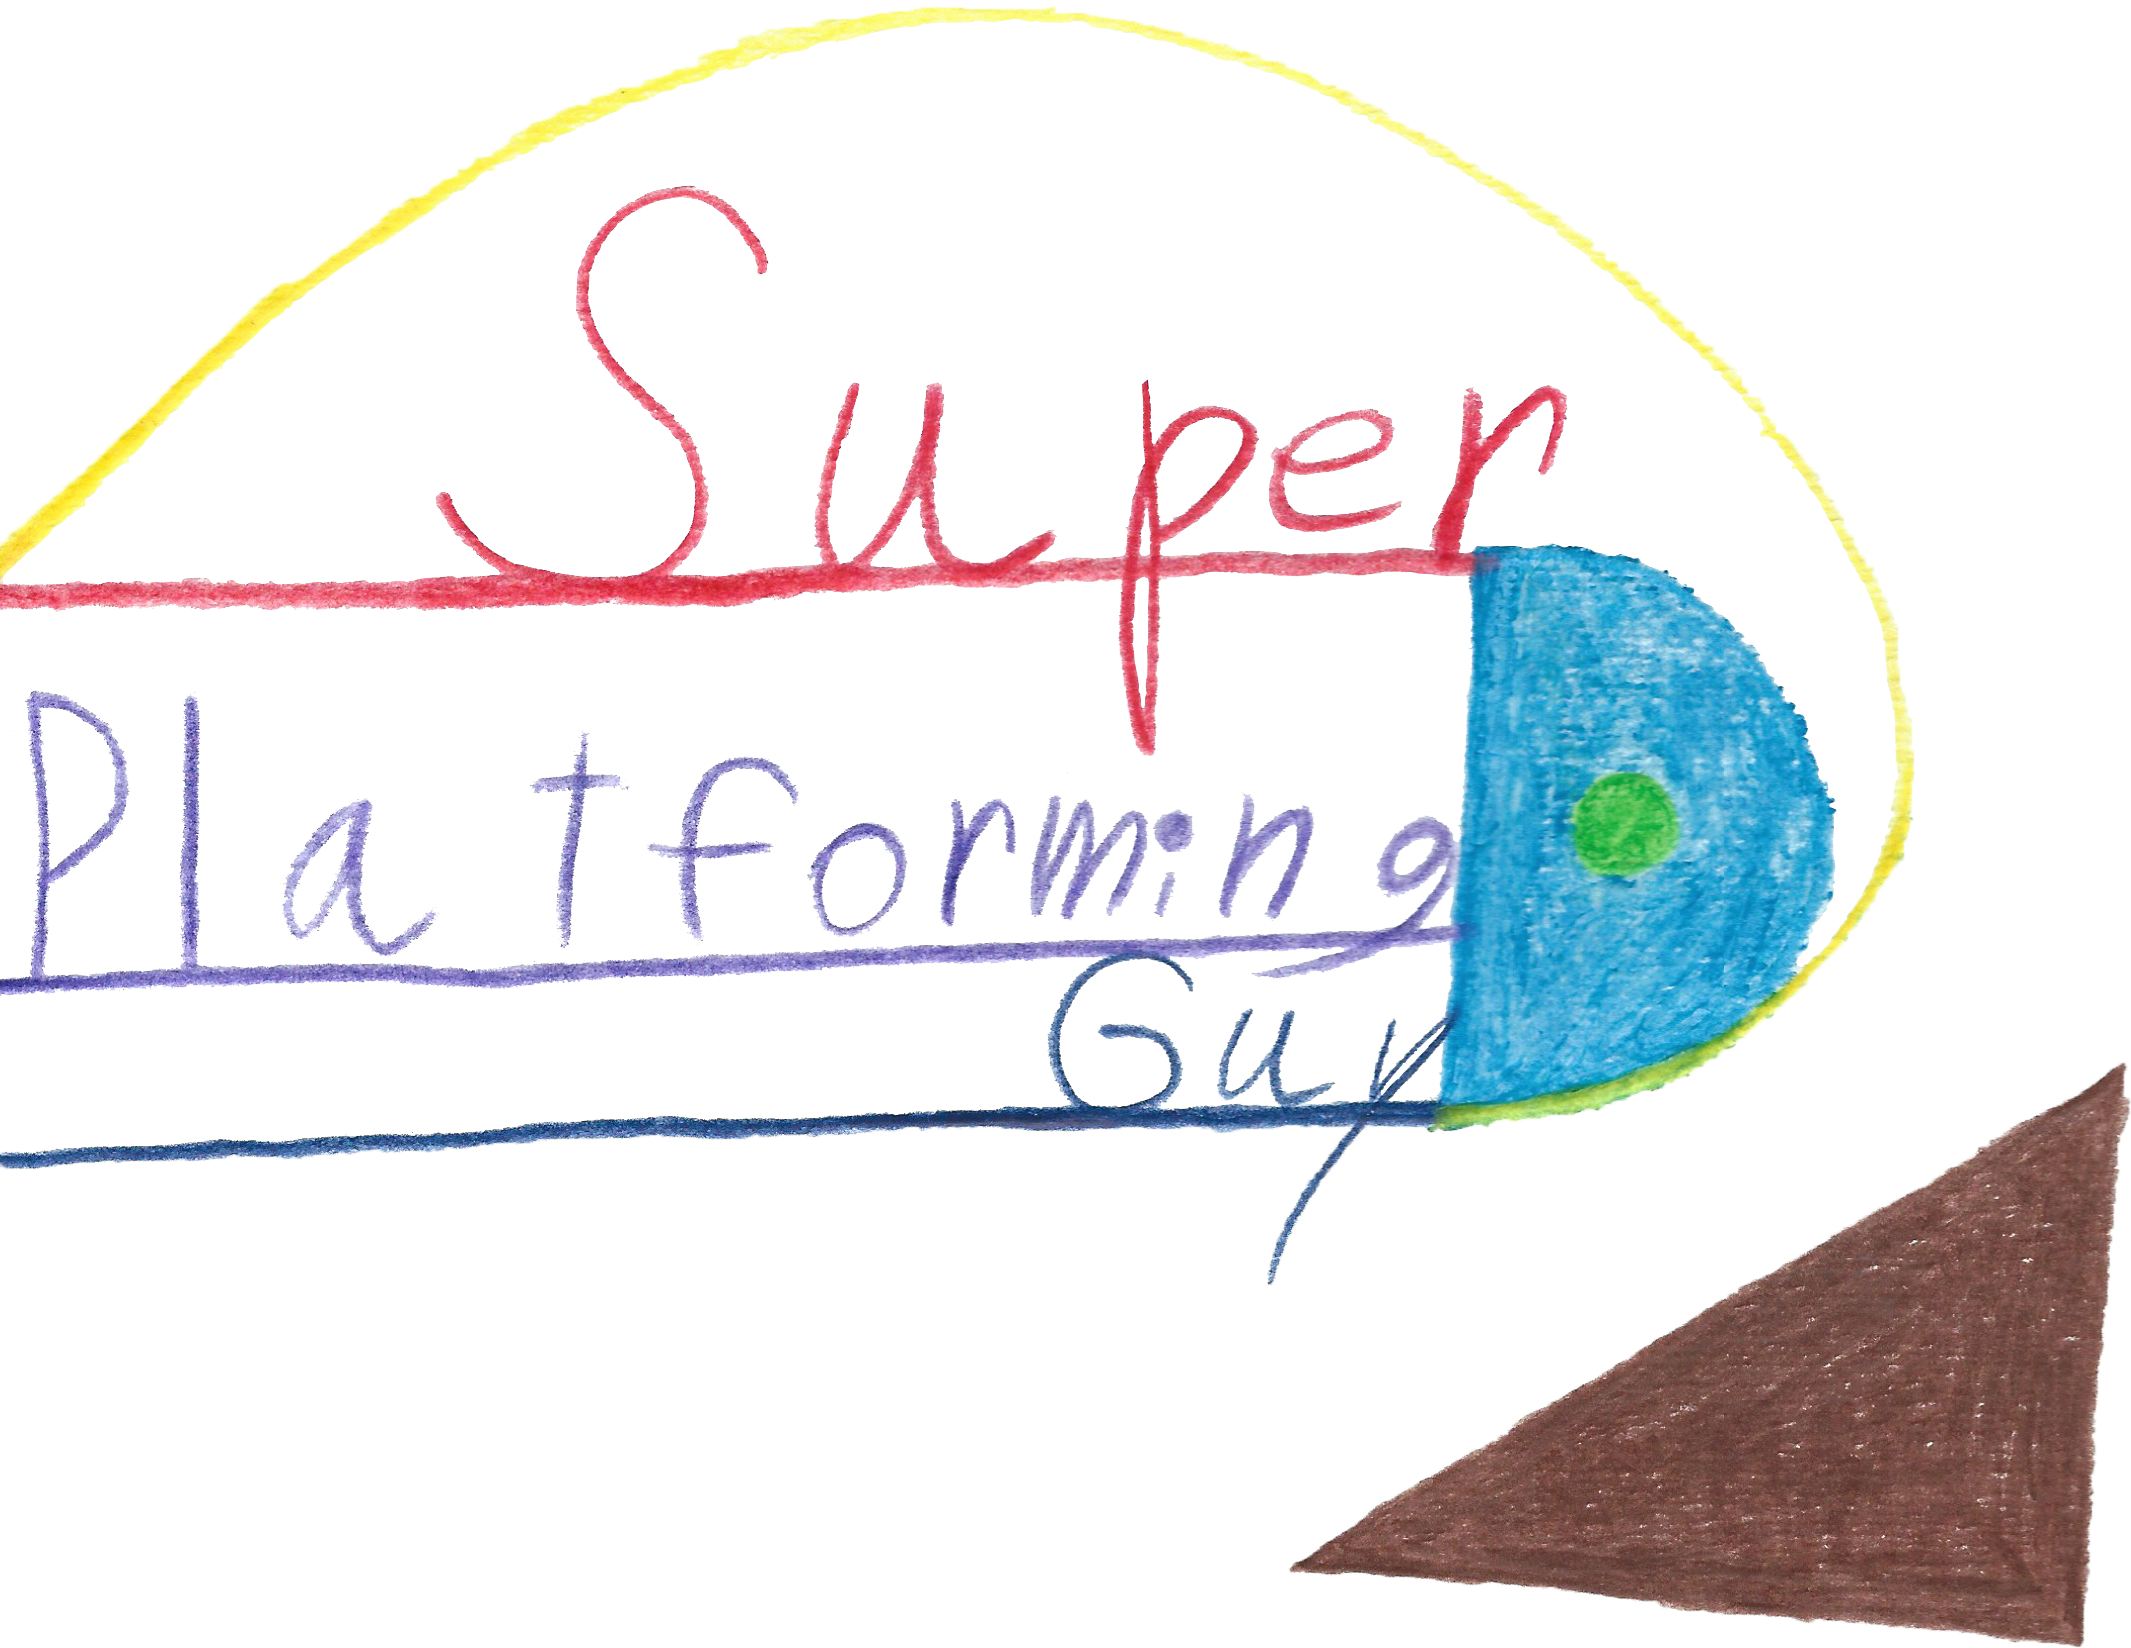 Super
Platforming
Guy